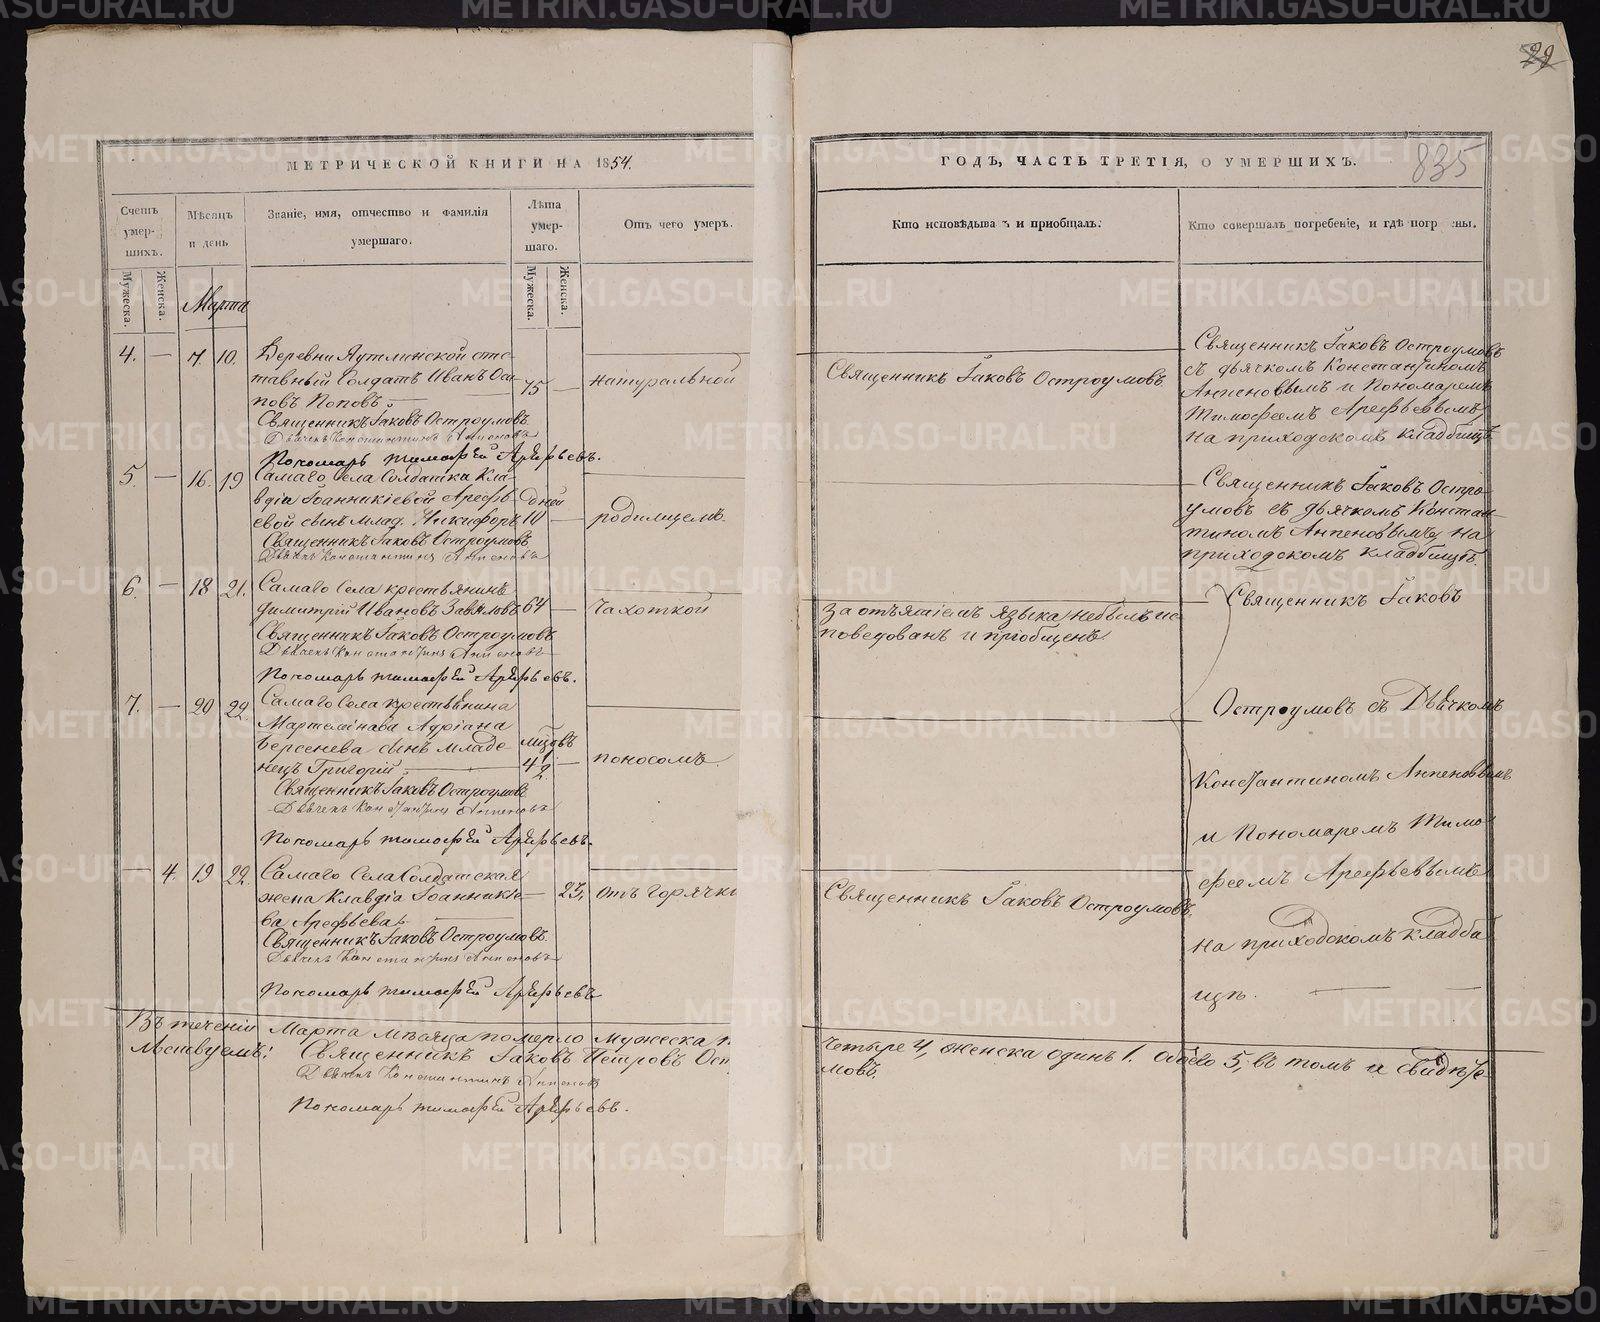 29
МЕТРИЧЕСКОЙ КНИГИ НА 1854.
ГОДЪ, ЧАСТЬ ТРЕТІЯ, О УМЕРШИХЪ.
835
Счетъ умер-шихъ.
Мѣсяцъ и день
Званіе, имя, отчество и фамилія умершаго.
Лѣта умер-шаго.
Отъ чего умеръ.
Кто исповѣдыва ъ и приобщалъ.
Кто совершалъ погребеніе, и гдѣ погр ены.
Мужеска.
Женска.
Марта
Мужеска.
Женска.
4. — 7. 10.
Деревни от-
тавный Солдатъ Иванъ Оси-
повъ Поповъ.
75 —
натуральной
Священникъ Іаковъ Остроумовъ
Дьячекъ Константинъ
Пономарь Тимофей Арефьевъ.
Священникъ Іаковъ Остроумовъ
Священникъ Іаковъ Остроумовъ
съ дьячкомъ Константиномъ
и Пономаремъ
Тимофеемъ Арефьевымъ
на приходскомъ кладбищѣ
5. — 16. 19
Самаго Села Солдатки Кла-
вдіи Іоанникіевой Арефь-
евой сынъ млад. Никифоръ
Дней
10 —
родимцемъ.
Священникъ Іаковъ Остроумовъ
Дьячекъ Константинъ
Священникъ Іаковъ Остро-
умовъ съ дьячкомъ Констан-
тиномъ на
приходскомъ кладбищѣ.
6. — 18 21.
Самаго Села крестьянинъ
Димитрій Ивановъ Завьяловъ
64 —
Чахоткой
Священникъ Іаковъ Остроумовъ
Дьячекъ Константинъ
Пономарь Тимофей Арефьевъ.
За отъятіемъ языка небылъ ис-
поведованъ и пріобщенъ
Священникъ Іаковъ
7. — 20 22.
Самаго Села крестьянина
Адріана
Берсенева сынъ младе-
нецъ Григорій
4 1/2 —
поносомъ.
Священникъ Іаковъ Остроумовъ
Дьячекъ Константинъ
Пономарь Тимофей Арефьевъ.
Остроумовъ съ Дьячкомъ
Константиномъ
и Пономаремъ Тимо-
— 4. 19 22.
Самаго Села Солдатская
жена Клавдія Іоанникіе-
ва Арефьева
— 23,
отъ горячки
Священникъ Іаковъ Остроумовъ.
Дьячекъ Константинъ
Пономарь Тимофей Арефьевъ
Священникъ Іаковъ Остроумовъ.
феемъ Арефьевымъ
на приходскомъ кладби-
щѣ.
Въ теченіи Марта мѣсяца померло мужеска п
четыре 4, женска одинъ 1. обоего 5, въ томъ и свидѣте-
льствуемъ: Священникъ Іаковъ Петровъ Ост
мовъ.
Дьячекъ Константинъ
Пономарь Тимофей Арефьевъ.
METRIKI.GASO-URAL.RU